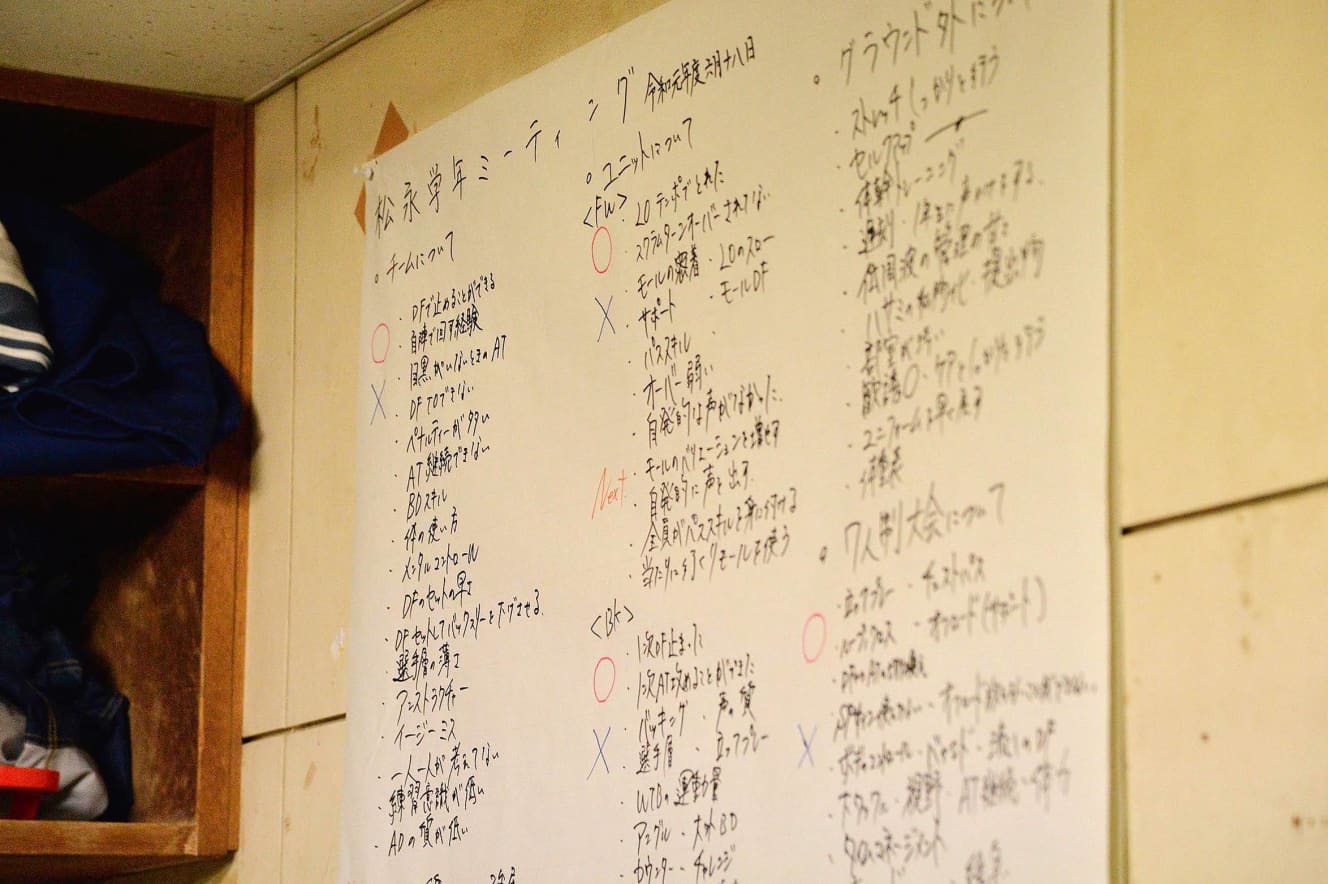 松永学年ミーティング 令和元年度六月十八日
○チームについて
○
・DFで止めることができる
・自陣で回す経験
X
・目黒がいないときのAT
・DF TOできない
・ペナルティーが多い
・AT継続できない
・BDスキル
・体の使い方
・メンタルコントロール
・DFのセットの早さ
・DFセットしてバックスリーを下げさせる。
・選手層の薄さ
・アンストラクチャー
・イージーミス
・一人一人が考えてない
・練習意識が低い
・ADの質が低い
○ユニットについて
<FW>
・LOテンポでとれた
○
・スクラムターンオーバーされてない
・モールの密着・LOのスロー
X
・サポート ・モールDF
・パススキル
・オーバー弱い
・自発的な声がなかった。
Next
・モールのバリエーションを増やす
・自発的に声を出す。
・全員がパススキルを身に付ける
・当たりに行くモールを使う
<BK>
○
・1次DF止まった
・1次AT攻めることができた
X
・バッキング ・声の質
・選手層 ・立ってプレー
・WTBの運動量
・アングル・大外BD
・カウンター・チャレンジ
○グラウンド外について
・ストレッチしっかりと行う
・セルフアップ
・体幹トレーニング
・遅刻・
・低周波の管理の甘さ
・ハサミの
・部室が汚い
・ケアしっかりを行う
・ユニフォームを早く戻す
・体重表
○7人制大会について
○
・立ってプレー ・チェストパス
・ループ、クロス ・オフロード(サポート)
X
・ボディコントロール・ ・流しのDF
・視野・AT継続・体力
・タイムマネージメント